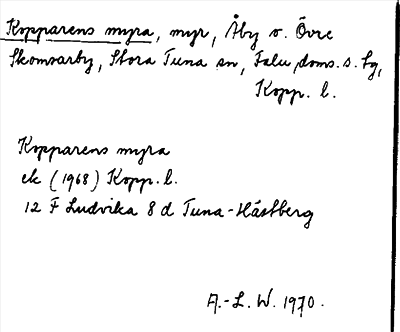 Kopparens myra, myr, Åby o. Övre
Skomsarby, Stora Tuna sn, Falu doms. s. tg,
Kopp. l.
Kopparens myra
ek (1968) Kopp. l.
12 F Ludvika 8 d Tuna-Hästberg
A.-L. W. 1970.